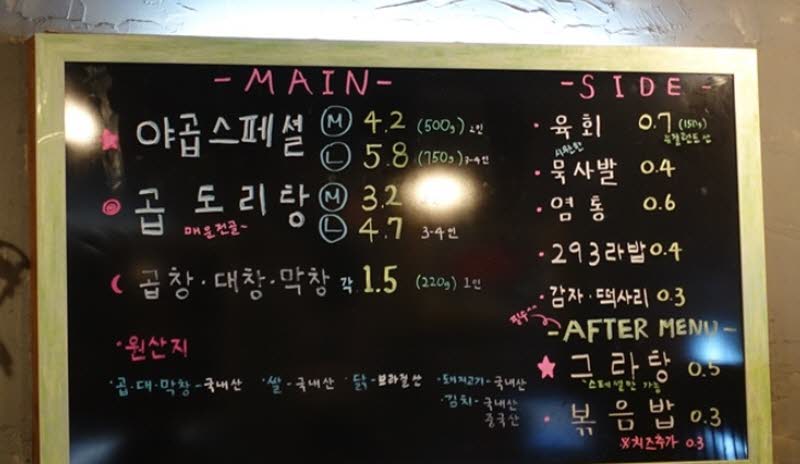 -MAIN-
야곱스페셜 M 4.2 (500g) 2인
L 5.8 (750g) 3-4인
곱도리탕 M 3.2
매운전골~ L 4.7 3-4인
곱창·대창·막창 각 1.5 (220g) 1인
·원산지
·곱·대·막창-국내산 ·쌀-국내산 ·닭-브라질산 ·돼지고기-국내산
·김치-국내산
중국산
-SIDE-
·육회 0.7 (150g)
뉴질랜드산
시원한
·묵사발 0.4
·염통 0.6
·293라밥 0.4
·감자·떡사리 0.3
필수~
-AFTER MENU-
그라탕 0.5
*스페셜만 가능
·볶음밥 0.3
※치즈추가 0.3